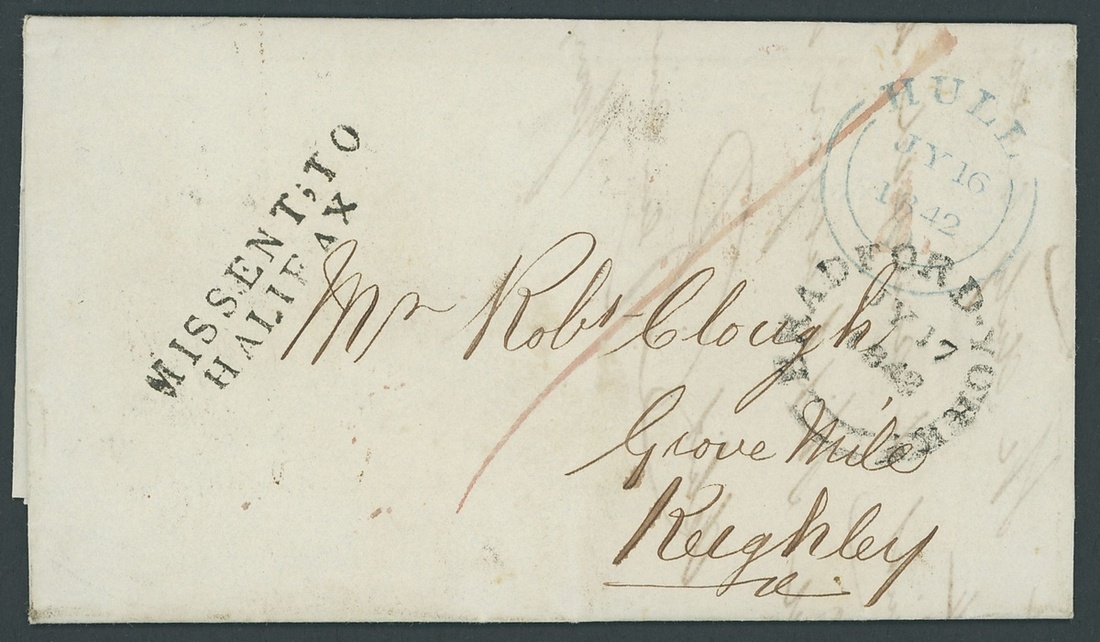 MISSENT;TO
HALIFAX
HULL
JY 16
1842
BRADFORD·YORKS
JY 17
1842
Mr Robt Clough
Grove Mile
Keighley